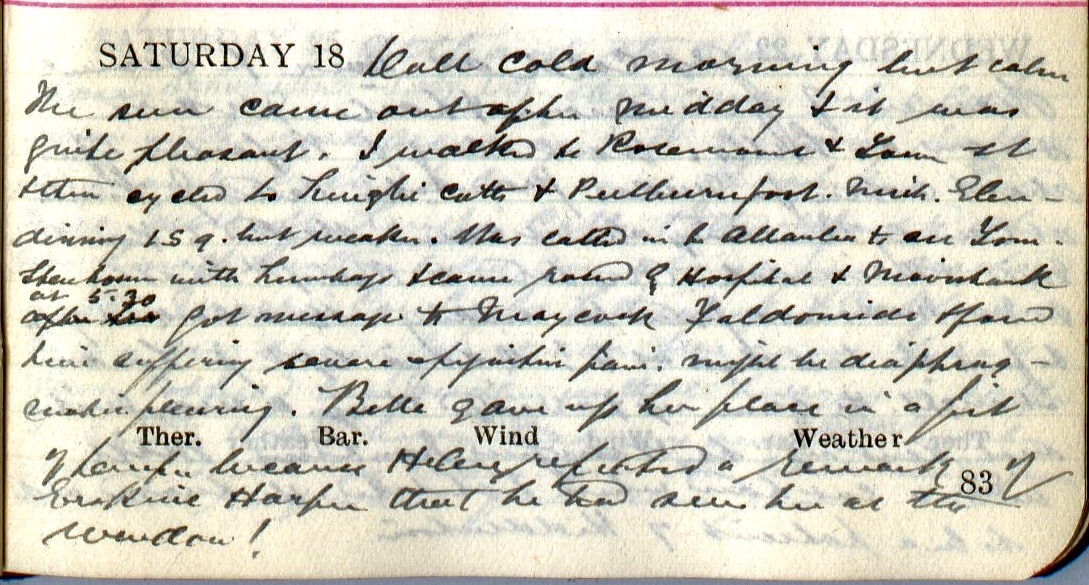 SATURDAY 18 Dull cold morning but calm
The sun came out after midday & it was
quite pleasant. I walked to Rosemount & Town st
& then cycled to Knight's Cotts & Pulburnfoot. Mick. Glen-
dinning 159. but weaker. Was called in to to see Tom.
with Lumbago & came round by Hospital & Mainsbank
at 5.30
after got message to Maycock Faldonside & found
him suffering severe epigastric pain. might be diaphrag-
matic pleurisy. Belle gave up her place in a fit
Ther. Bar. Wind Weather
of temper because Helen repeated a remark of
83
Erskine Harper that he had seen her at the
window!